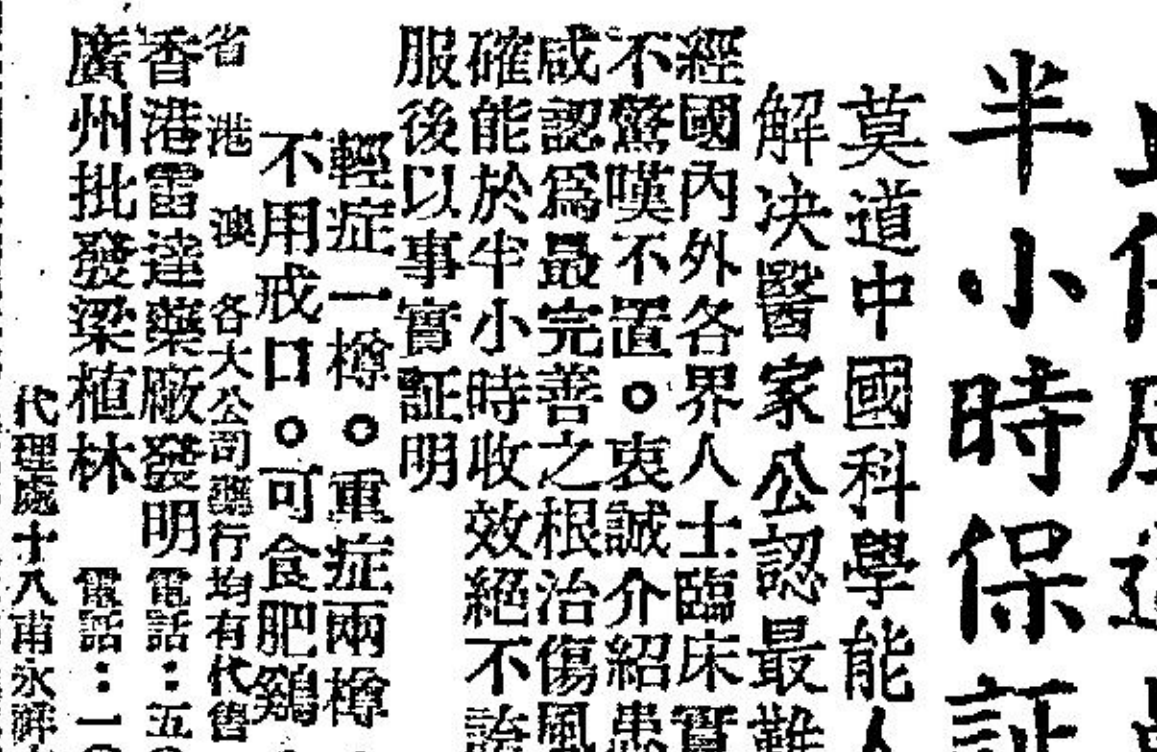 半小時保証
莫道中國科學能
解决醫家公認最難
經國內外各界人士臨床實
不驚嘆不置。衷誠介紹患
咸認爲最完善之根治傷風
確能於半小時收效絕不誇
服後以事實証明
輕症一樽。重症兩樽
不用戒口。可食肥鷄
省港澳各大公司藥行均有代售
香港雷達藥廠發明 電話：五
廣州批發梁植林 電話：一
代理處十八甫永